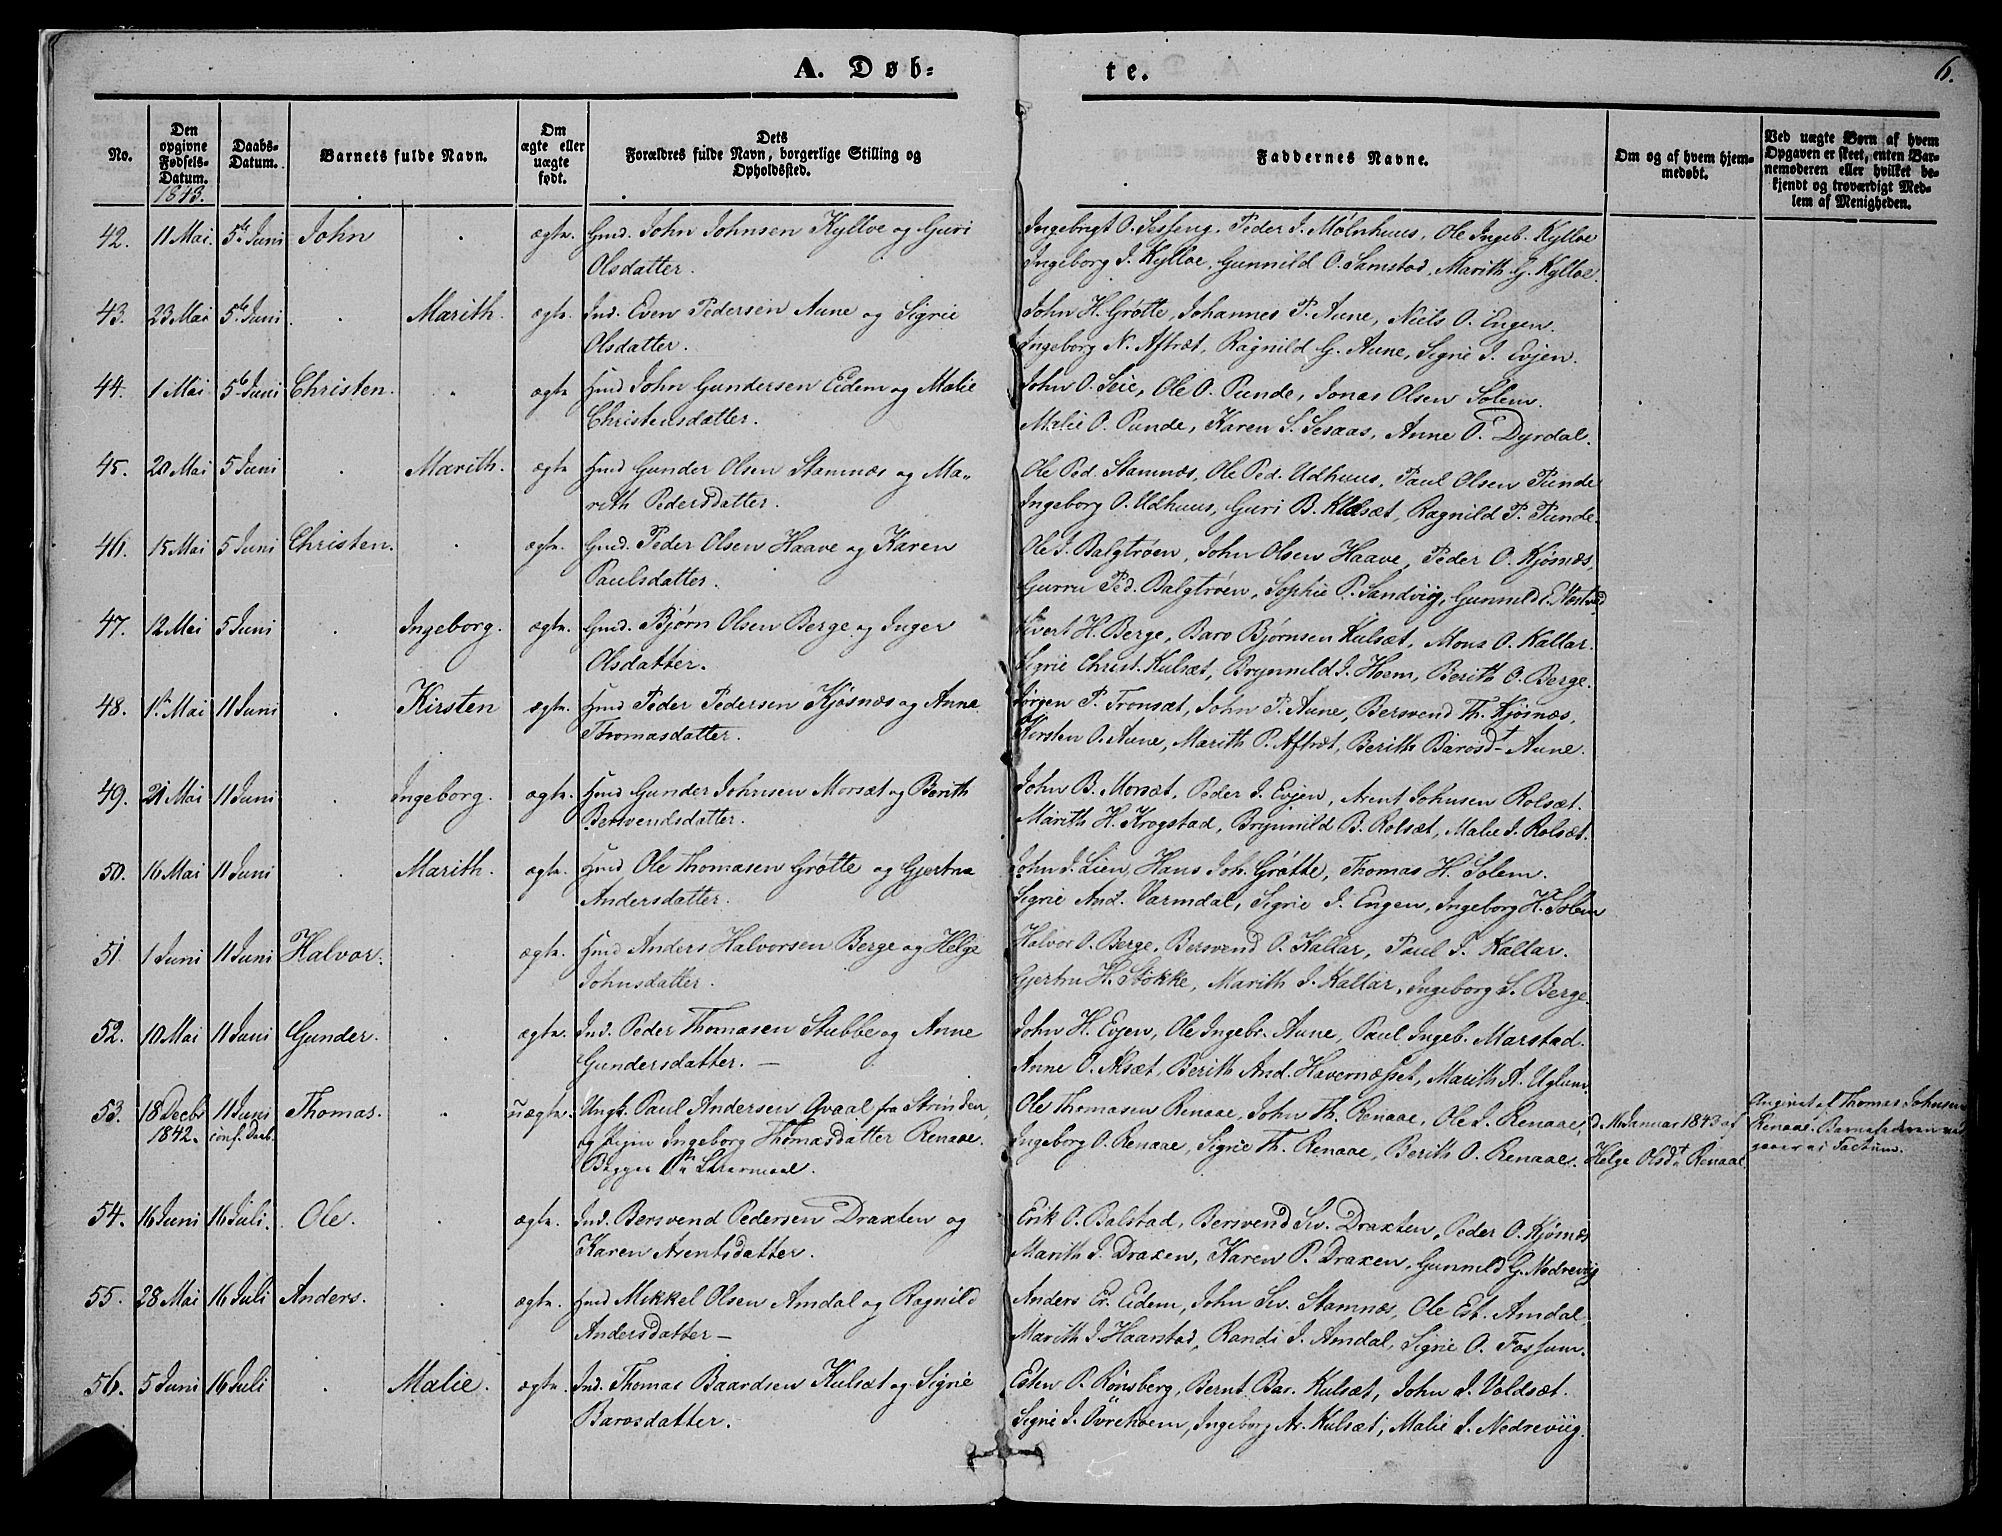 A. Døb-
te.
6.
No.
Den opgivne Fødsels-Datum.
1843.
Daabs-Datum.
Barnets fulde Navn.
Om ægte eller uægte født.
Dets Forældres fulde Navn, borgerlige Stilling og Opholdsted.
Faddernes Navne.
Om og af hvem hjem-medøbt.
Ved uægte Børn af hvem Opgaven er skeet, enten Bar-nemoderen eller hvilket be-kjendt og troværdigt Med-lem af Menigheden.
42. 11 Mai 5te Juni John ægte. Gmd. John Johnsen Kylloe og Guri
Olsdatter.
Ingebrigt O. Sesseng. Peder J. Mølnhuus, Ole Ingeb. Kylloe
Ingeborg J. Kylloe, Gunnild O. Samstad, Marith G. Kylloe.
43. 23 Mai 5te Juni Marith. ægte. Ind. Even Pedersen Aune og Sigrie
Olsdatter.
John H. Grøtte, Johannes P. Aune, Niels O. Engen.
Ingeborg N. Aftræt, Ragnild G. Aune, Sigrie J. Evjen.
44. 1 Mai 5te Juni Christen. ægte Hmd John Gundersen Eidem og Malie
Christensdatter.
John O. Seie, Ole O. Punde, Jonas Olsen Solem.
Malie O. Punde, Karen S. Sesaas, Anne O. Dyrdal.
45. 20 Mai 5 Juni Marith. ægte Hmd Gunder Olsen Stamnæs og Ma-
rith Pedersdatter.
Ole Ped. Stamnæs, Ole Ped. Udhuus, Paul Olsen Punde
Ingeborg O. Udhuus, Guri B. Kulsæt, Ragnild P. Punde.
46. 15 Mai 5 Juni Christen. ægte. Gmd. Peder Olsen Haave og Karen
Paulsdatter.
Ole J. Balgtrøen, John Olsen Haave, Peder O. Kjøsnæs,
Gurru Ped. Balgtrøen, Sophie P. Sandvig, Gunnild E.
47. 12 Mai 5 Juni Ingeborg. ægte. Gmd. Bjørn Olsen Berge og Inger
Olsdatter.
Sivert H. Berge, Baro Bjørnsen Kulsæt, Mons O. Kallar.
Sigrie Christ. Kulsæt, Brynnild J. Hoem, Berith O. Berge.
48. 1 Mai 11 Juni Kirsten ægte. Hmd Peder Pedersen Kjøsnæs og Anne
Thomasdatter.
Jørgen P. Tronsæt, John P. Aune, Bersvend Th. Kjøsnæs,
Kirsten O. Aune, Marith P. Aftræt, Berith Barosdt Aune.
49. 21 Mai 11 Juni Ingeborg. ægte. Hmd Gunder Johnsen Morsæt og Berith
Bersvendsdatter.
John B. Morsæt, Peder J. Evjen, Arent Johnsen Rolsæt.
Marith H. Krogstad, Brynnild B. Rolsæt, Malie J. Rolsæt.
50. 16 Mai 11 Juni Marith. ægte. Hmd Ole Thomasen Grøtte og Gjertru
Andersdatter.
John J. Lien, Hans Joh. Grøtte, Thomas H. Solem.
Sigrie And. Varmdal, Sigrie J. Engen, Ingeborg H. Solem
51. 1 Juni 11 Juni Halvor. ægte. Hmd Anders Halvorsen Berge og Helge
Johnsdatter.
Halvor O. Berge, Bersvend O. Kallar, Paul J. Kallar.
Gjertru H. Stokke, Marith J. Kallar, Ingeborg S. Berge.
52. 10 Mai 11 Juni Gunder. ægte. Ind. Peder Thomasen Stubbe og Anne
Gundersdatter. —
John H. Evjen, Ole Ingebr. Aune, Paul Ingeb. Marstad.
Anne O. Alsæt, Berith And. Havernæsset, Marith A. Uglum.
53. 18 Decbr 1842. 11 Juni conf. Daab. Thomas. uægte. Ungk. Paul Andersen Qvaal fra Strinden,
og Pigen Ingeborg Thomasdatter Renaae.
Begges 1ste Leiermaal.
Ole Thomasen Renaae, John Th. Renaae, Ole J. Renaae,
Ingeborg O. Renaae, Sigrie Th. Renaae, Berith O. Renaae.
d. 1 Januar 1843 af
Helge Olsdt Renaae.
Angivet af Thomas Johnsen
Renaae. Barnefaderen ved
gaaer ei Factum.
54. 16 Juni 16 Juli. Ole. ægte. Ind. Bersvend Pedersen Draxten og
Karen Arentsdatter.
Erik O. Balstad, Bersvend Siv. Draxten, Peder O. Kjøsnæs
Marith J. Draxen, Karen P. Draxen, Gunnild G. Nedreviig
55. 28 Mai 16 Juli Anders. ægte. Hmd Mikkel Olsen Amdal og Ragnild
Andersdatter —
Anders Er. Eidem, John Siv. Stamnæs, Ole Est. Amdal.
Marith J Haarstad, Randi J. Amdal, Sigrie O. Fossum.
56. 5 Juni 16 Juli Malie. ægte. Ind. Thomas Baardsen Kulsæt og Sigrie
Barosdatter.
Esten P. Rønsberg, Bernt Bar. Kulsæt, John J. Voldsæt.
Sigrie J. Øvrehoem, Ingeborg Ar. Kulsæt, Malie J. Nedreviig.